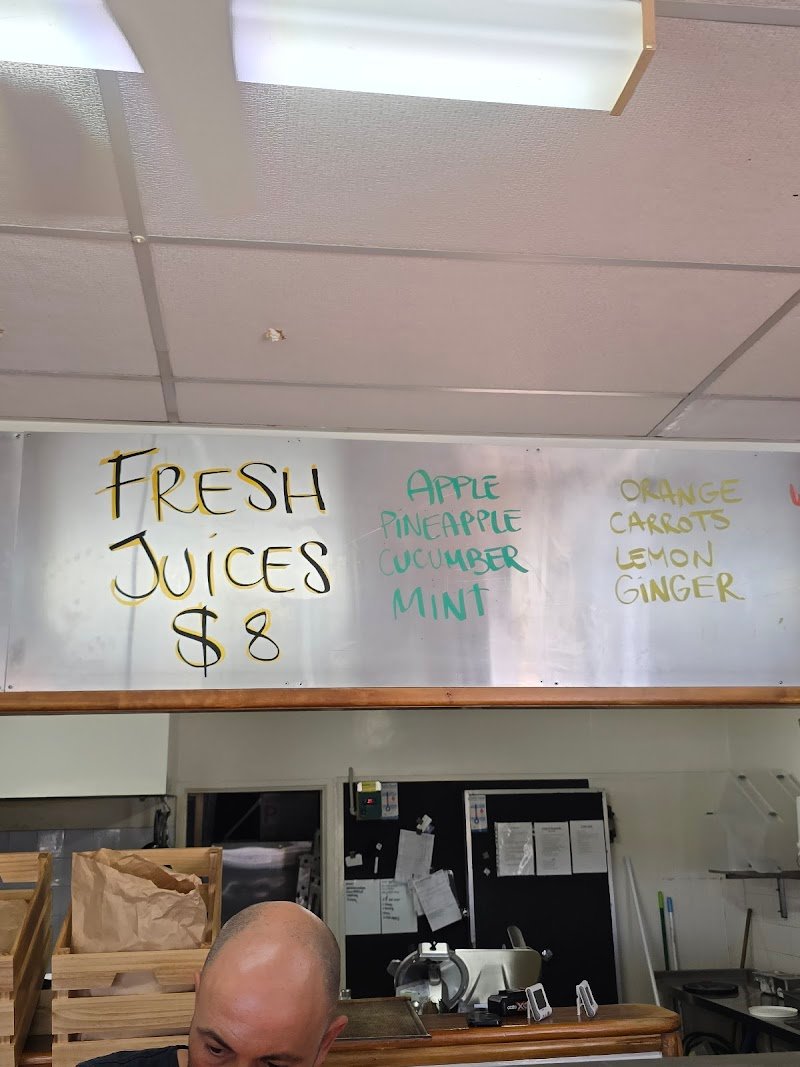 FRESH
JUICES
$8
APPLE
PINEAPPLE
CUCUMBER
MINT
ORANGE
CARROTS
LEMON
GINGER